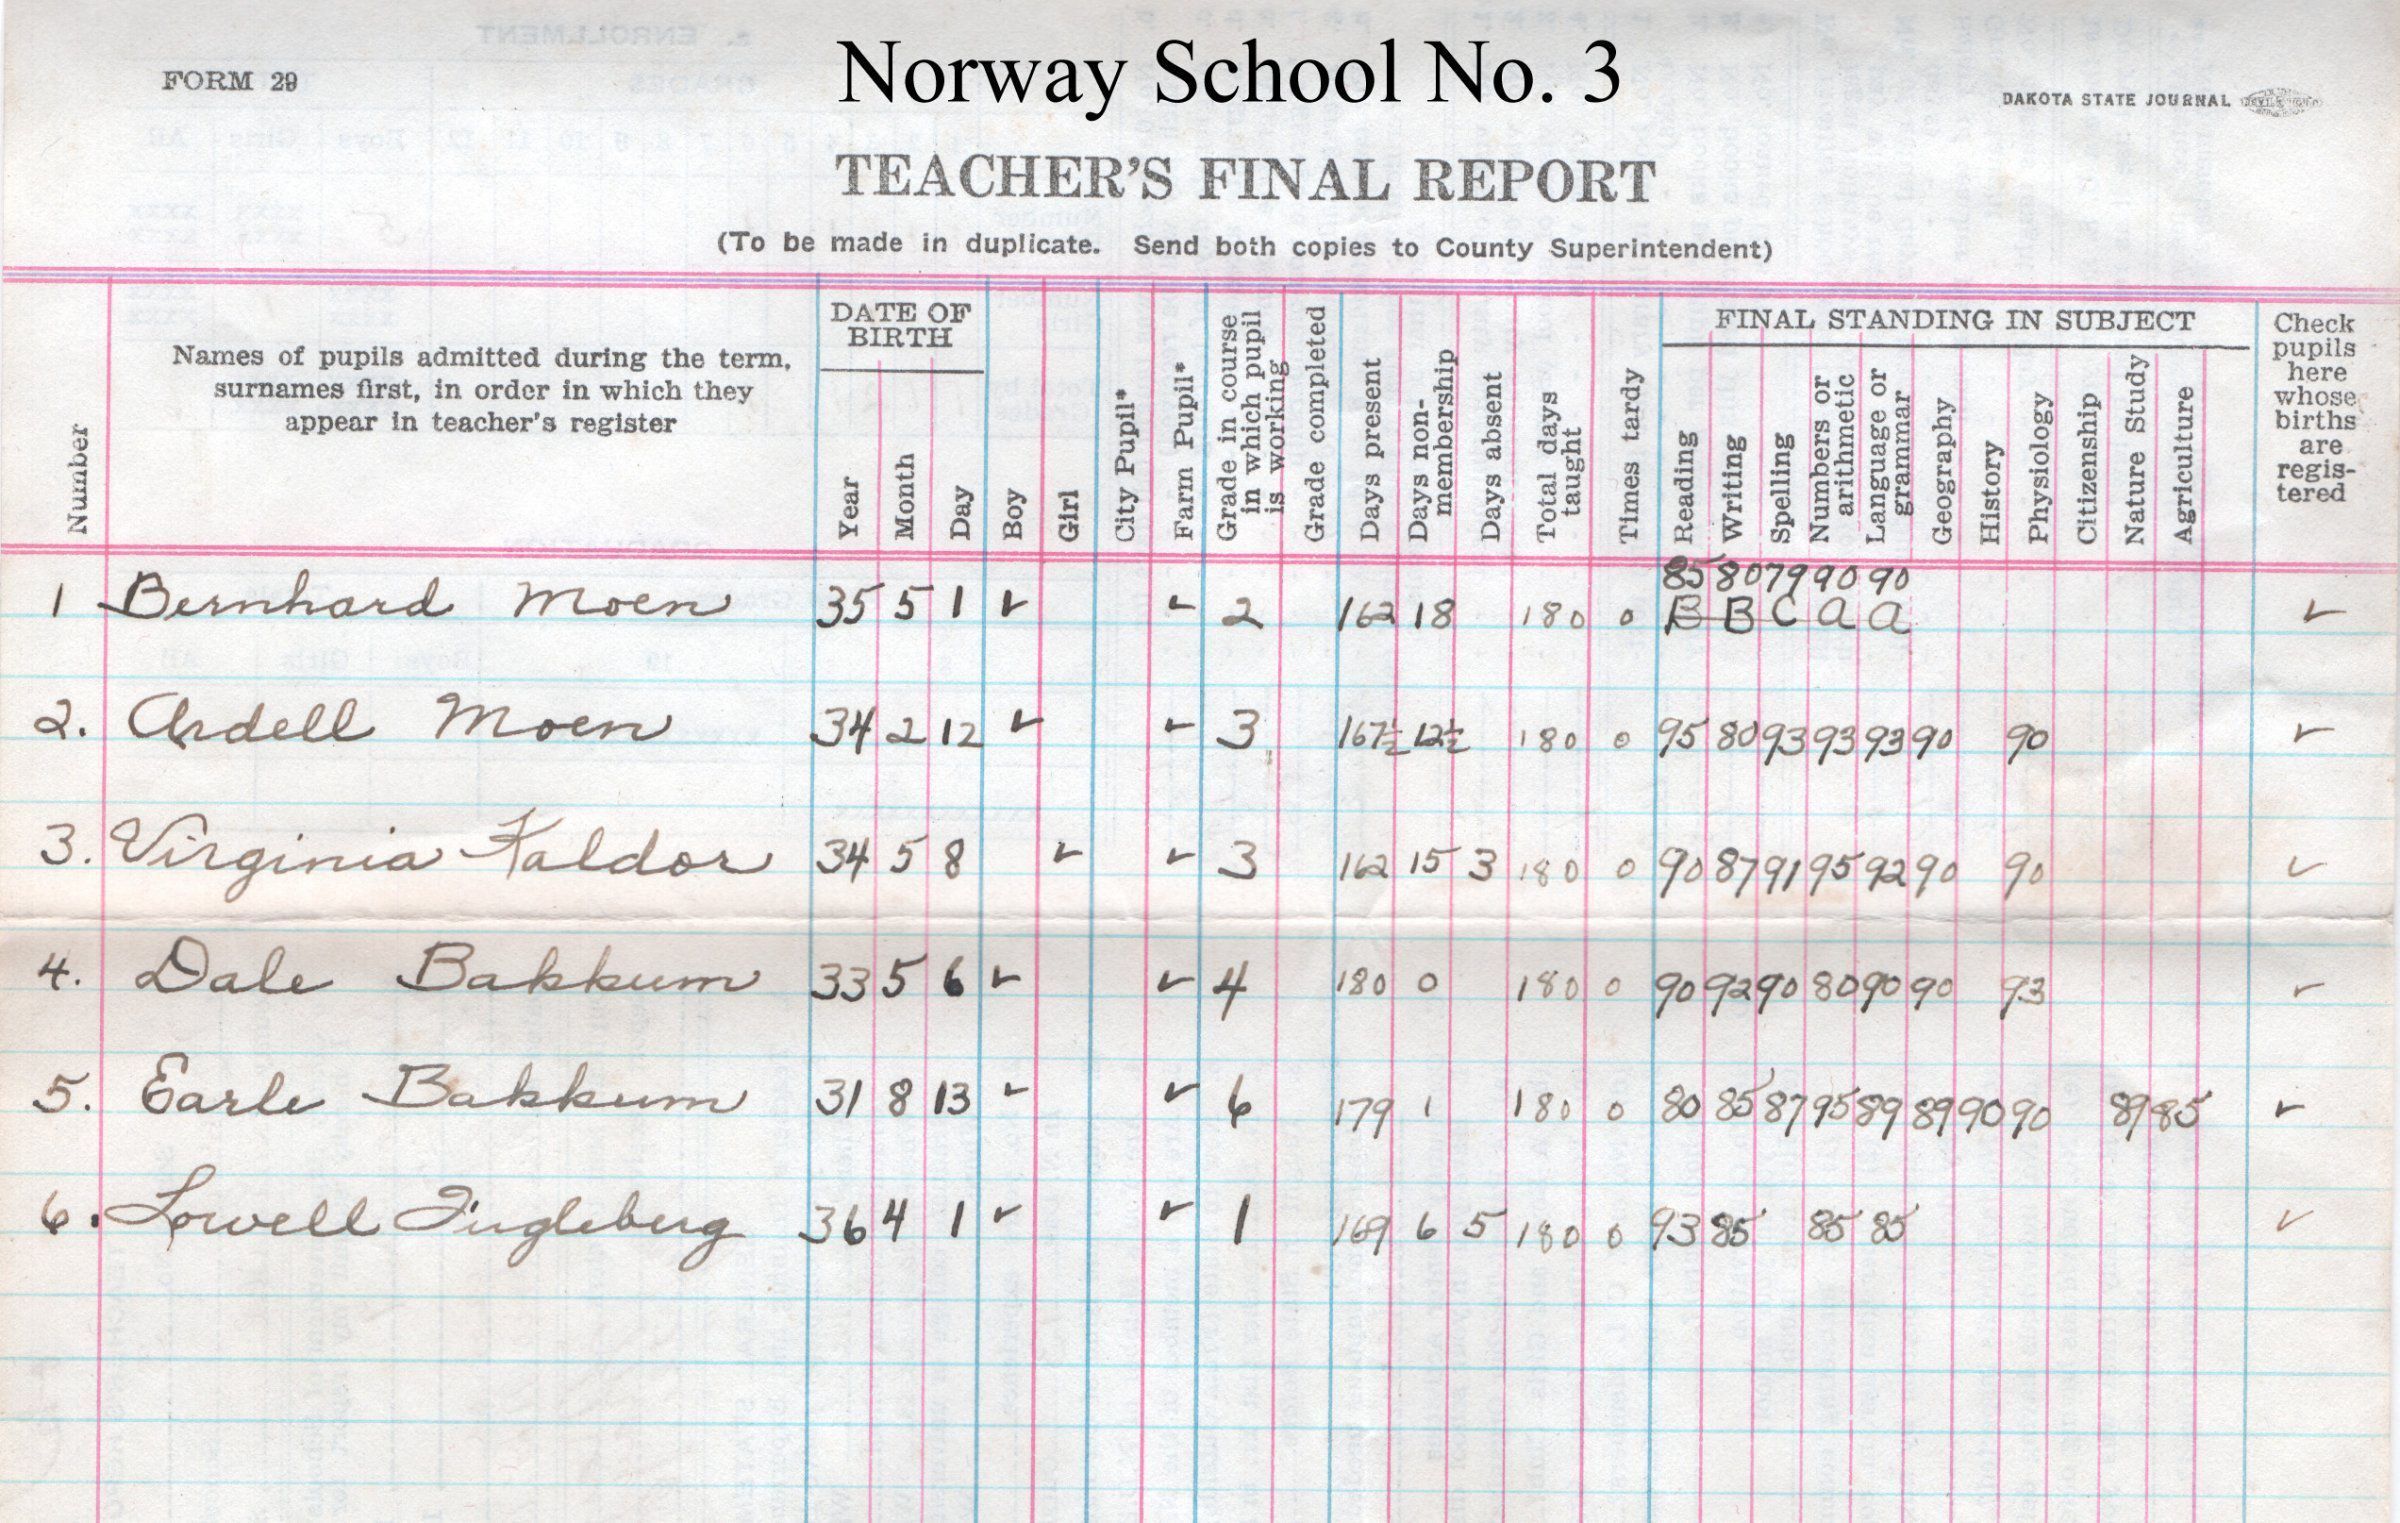 Norway School No. 3
FORM 29
DAKOTA STATE JOURNAL
TEACHER'S FINAL REPORT
(To be made in duplicate. Send both copies to County Superintendent)
Number
Names of pupils admitted during the term, surnames first, in order in which they appear in teacher's register
DATE OF BIRTH
Year
Month
Day
Boy
Girl
City Pupil*
Farm Pupil*
Grade in course in which pupil is working
Grade completed
Days present
Days non-membership
Days absent
Total days taught
Times tardy
FINAL STANDING IN SUBJECT
Reading
Writing
Spelling
Numbers or arithmetic
Language or grammar
Geography
History
Physiology
Citizenship
Nature Study
Agriculture
Check pupils here whose births are regis-tered
85 80 79 90 90
1 Bernhard Moen 35 5 1 ✓ ✓ 2 162 18 180 0 B B C a a ✓
2. Ardell Moen 34 2 12 ✓ ✓ 3 167½ 12½ 180 0 95 80 93 93 93 90 90 ✓
3. Virginia Kaldor 34 5 8 ✓ ✓ 3 162 15 3 180 0 90 87 91 95 92 90 90 ✓
4. Dale Bakkum 33 5 6 ✓ ✓ 4 180 0 180 0 90 92 90 80 90 90 93 ✓
5. Earle Bakkum 31 8 13 ✓ ✓ 6 179 1 180 0 80 85 87 95 89 89 90 90 89 85 ✓
6. Lowell Ingleberg 36 4 1 ✓ ✓ 1 169 6 5 180 0 93 85 85 85 ✓